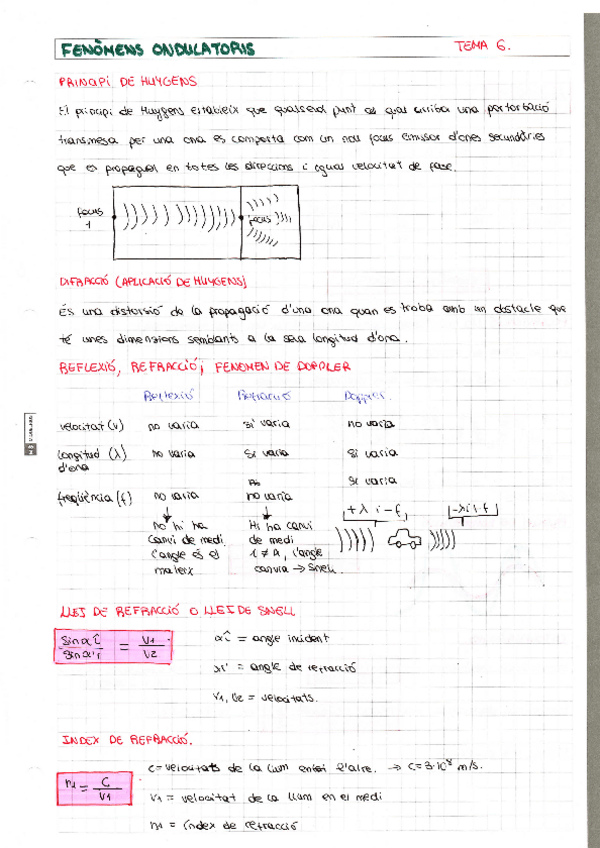 FENÒMENS ONDULATORIS
TEMA 6.
PRINCIPI DE HUYGENS
El principi de Huygens estableix que qualsevol punt al qual arriba una portorbació
transmesa per una ona es comporta com un nou focus emissor d'ones secundàries
que es propaguen en totes les direccions i igual velocitat de fase.
focus
1
focus
DIFRACCIÓ (APLICACIÓ DE HUYGENS)
És una distorsió de la propagació d'una ona quan es troba amb un obstacle que
té unes dimensions semblants a la seva longitud d'ona.
REFLEXIÓ, REFRACCIÓ i FENOMEN DE DOPPLER
Reflexió Refracció Doppler.
velocitat (v) no varia si varia no varia
longitud (λ) no varia si varia si varia
d'ona
si varia
freqüència (f) no varia no varia
+λ i -f, -λ i ↑f
No hi ha Hi ha canvi
canvi de medi. de medi
l'angle és el i ≠ r, l'angle
mateix canvia → Snell.
LLEI DE REFRACCIÓ O LLEI DE SNELL
sin α î / sin α' r = V1 / V2
α î = angle incident
= angle de refracció
V1, V2 = velocitats.
INDEX DE REFRACCIÓ.
n1 = C / V1
c = velocitats de la llum en l'aire. → c = 3·10⁸ m/s.
V1 = velocitat de la llum en el medi
n1 = índex de refracció